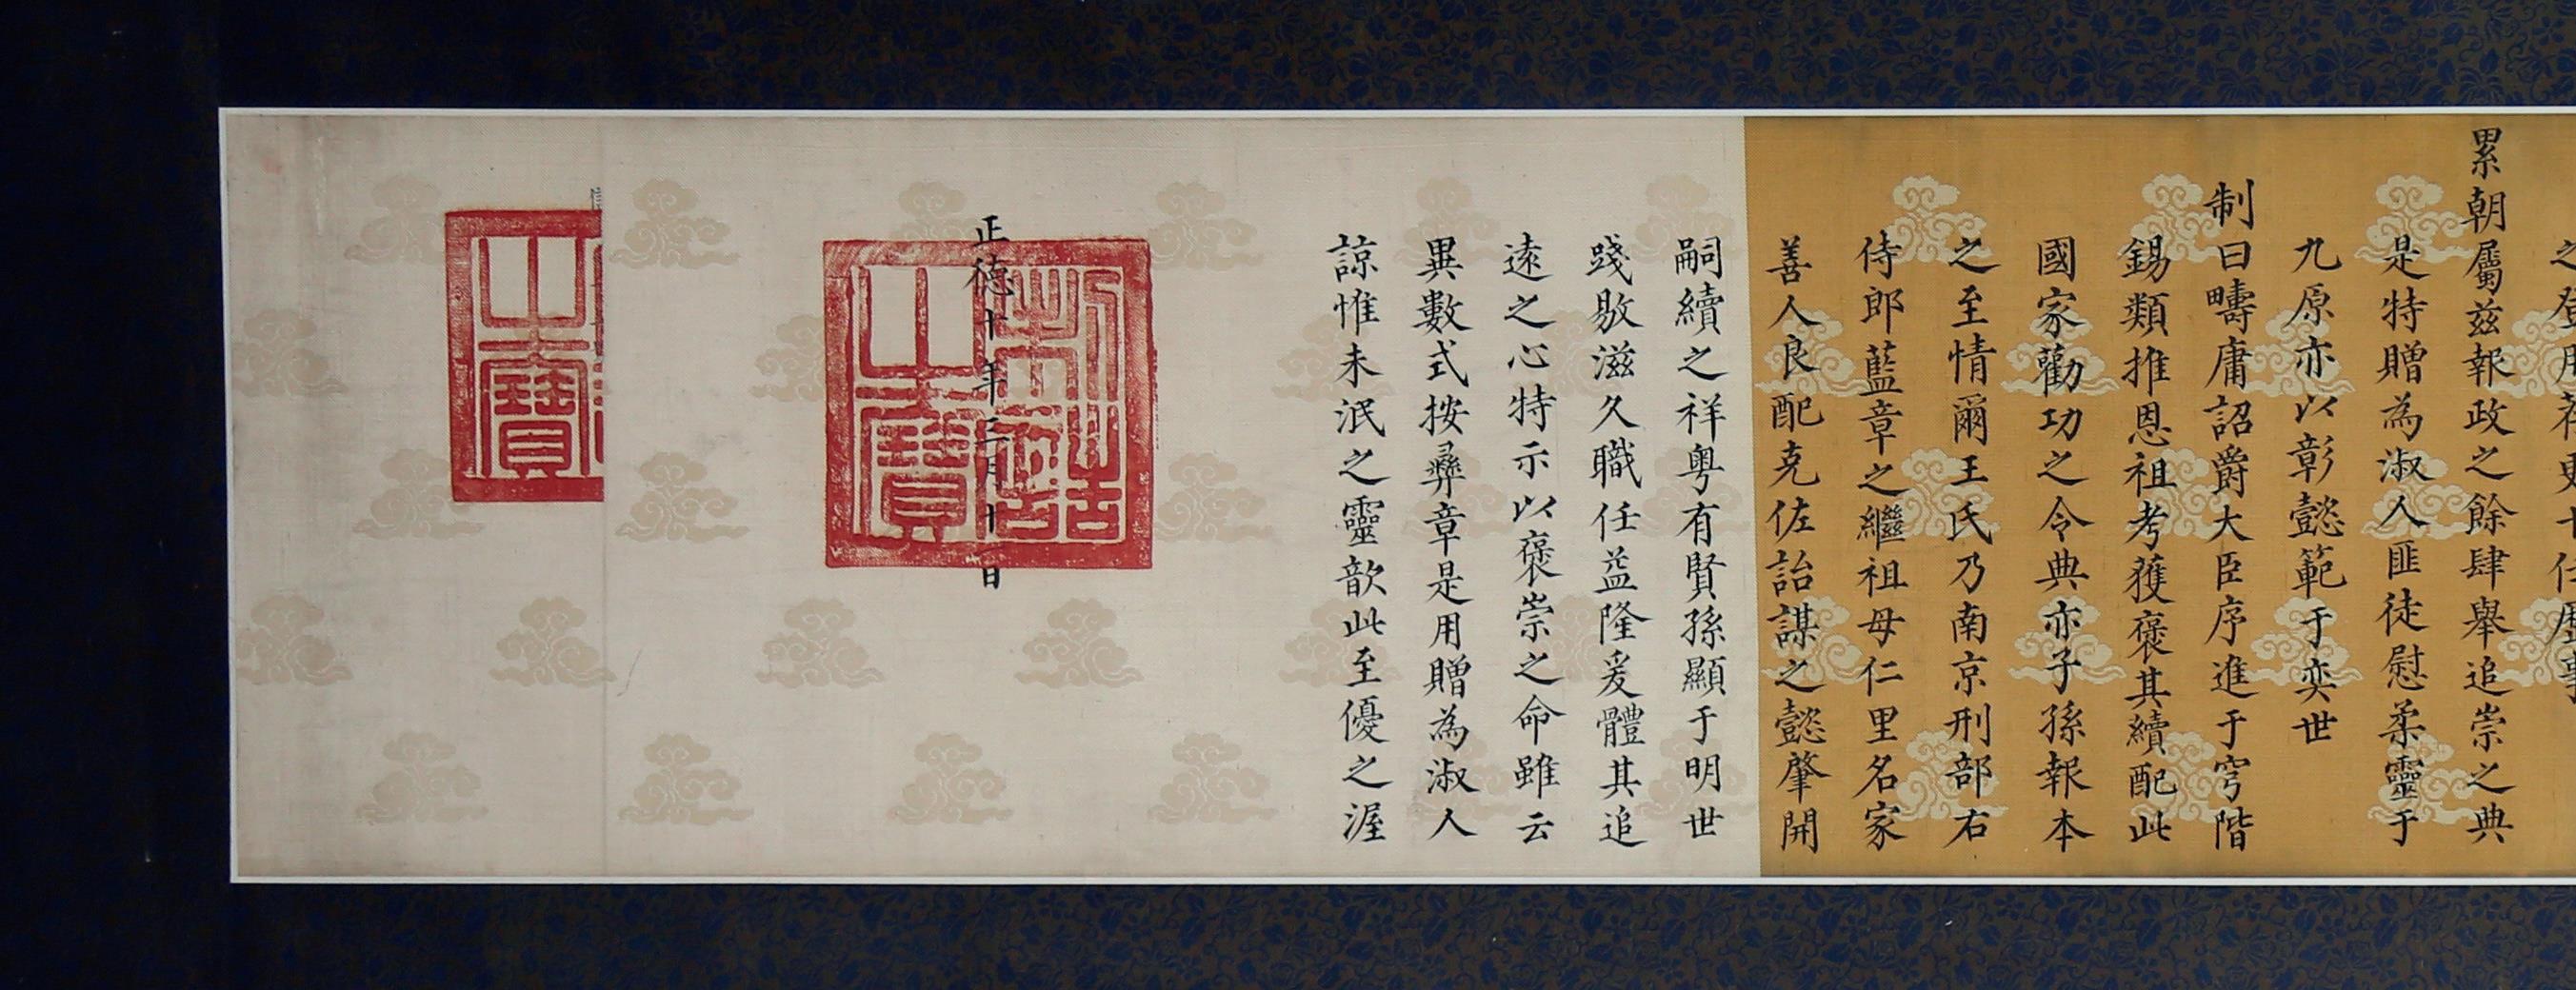 累朝屬茲報政之餘肆舉追崇之典
是特贈為淑人匪徒慰柔靈于
九原亦以彰懿範于奕世
制曰疇庸詔爵大臣序進于穹階
錫類推恩祖考獲褒其續配此
國家勸功之令典亦子孫報本
之至情爾王氏乃南京刑部右
侍郎藍章之繼祖母仁里名家
善人良配克佐詒謀之懿肇開
嗣續之祥粵有賢孫顯于明世
踐敭滋久職任益隆爰體其追
遠之心特示以褒崇之命雖云
異數式按彝章是用贈為淑人
諒惟未泯之靈歆此至優之渥
制誥之寶
正德十年三月十二日
之寶